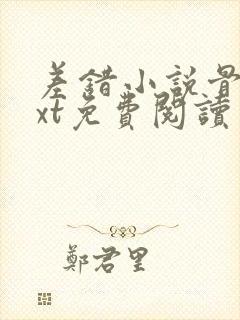 差錯小説骨
xt免費閱讀
鄭君里